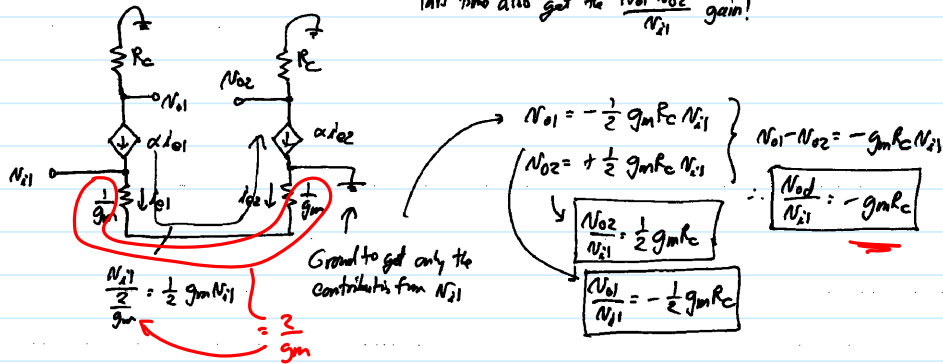 This also get the (No1-No2)/Ni1 gain!
Rc
Rc
No2
No1
αie1
αie2
Ni1
1/gm
ie1
ie2
1/gm
Ground to get only the
contribution from Ni1
Ni1/(2/gm) = 1/2 gm Ni1
= 2/gm
No1 = -1/2 gm Rc Ni1
No2 = +1/2 gm Rc Ni1
No1-No2 = -gm Rc Ni1
∴ Nod/Ni1 = -gm Rc
No2/Ni1 = 1/2 gm Rc
No1/Ni1 = -1/2 gm Rc